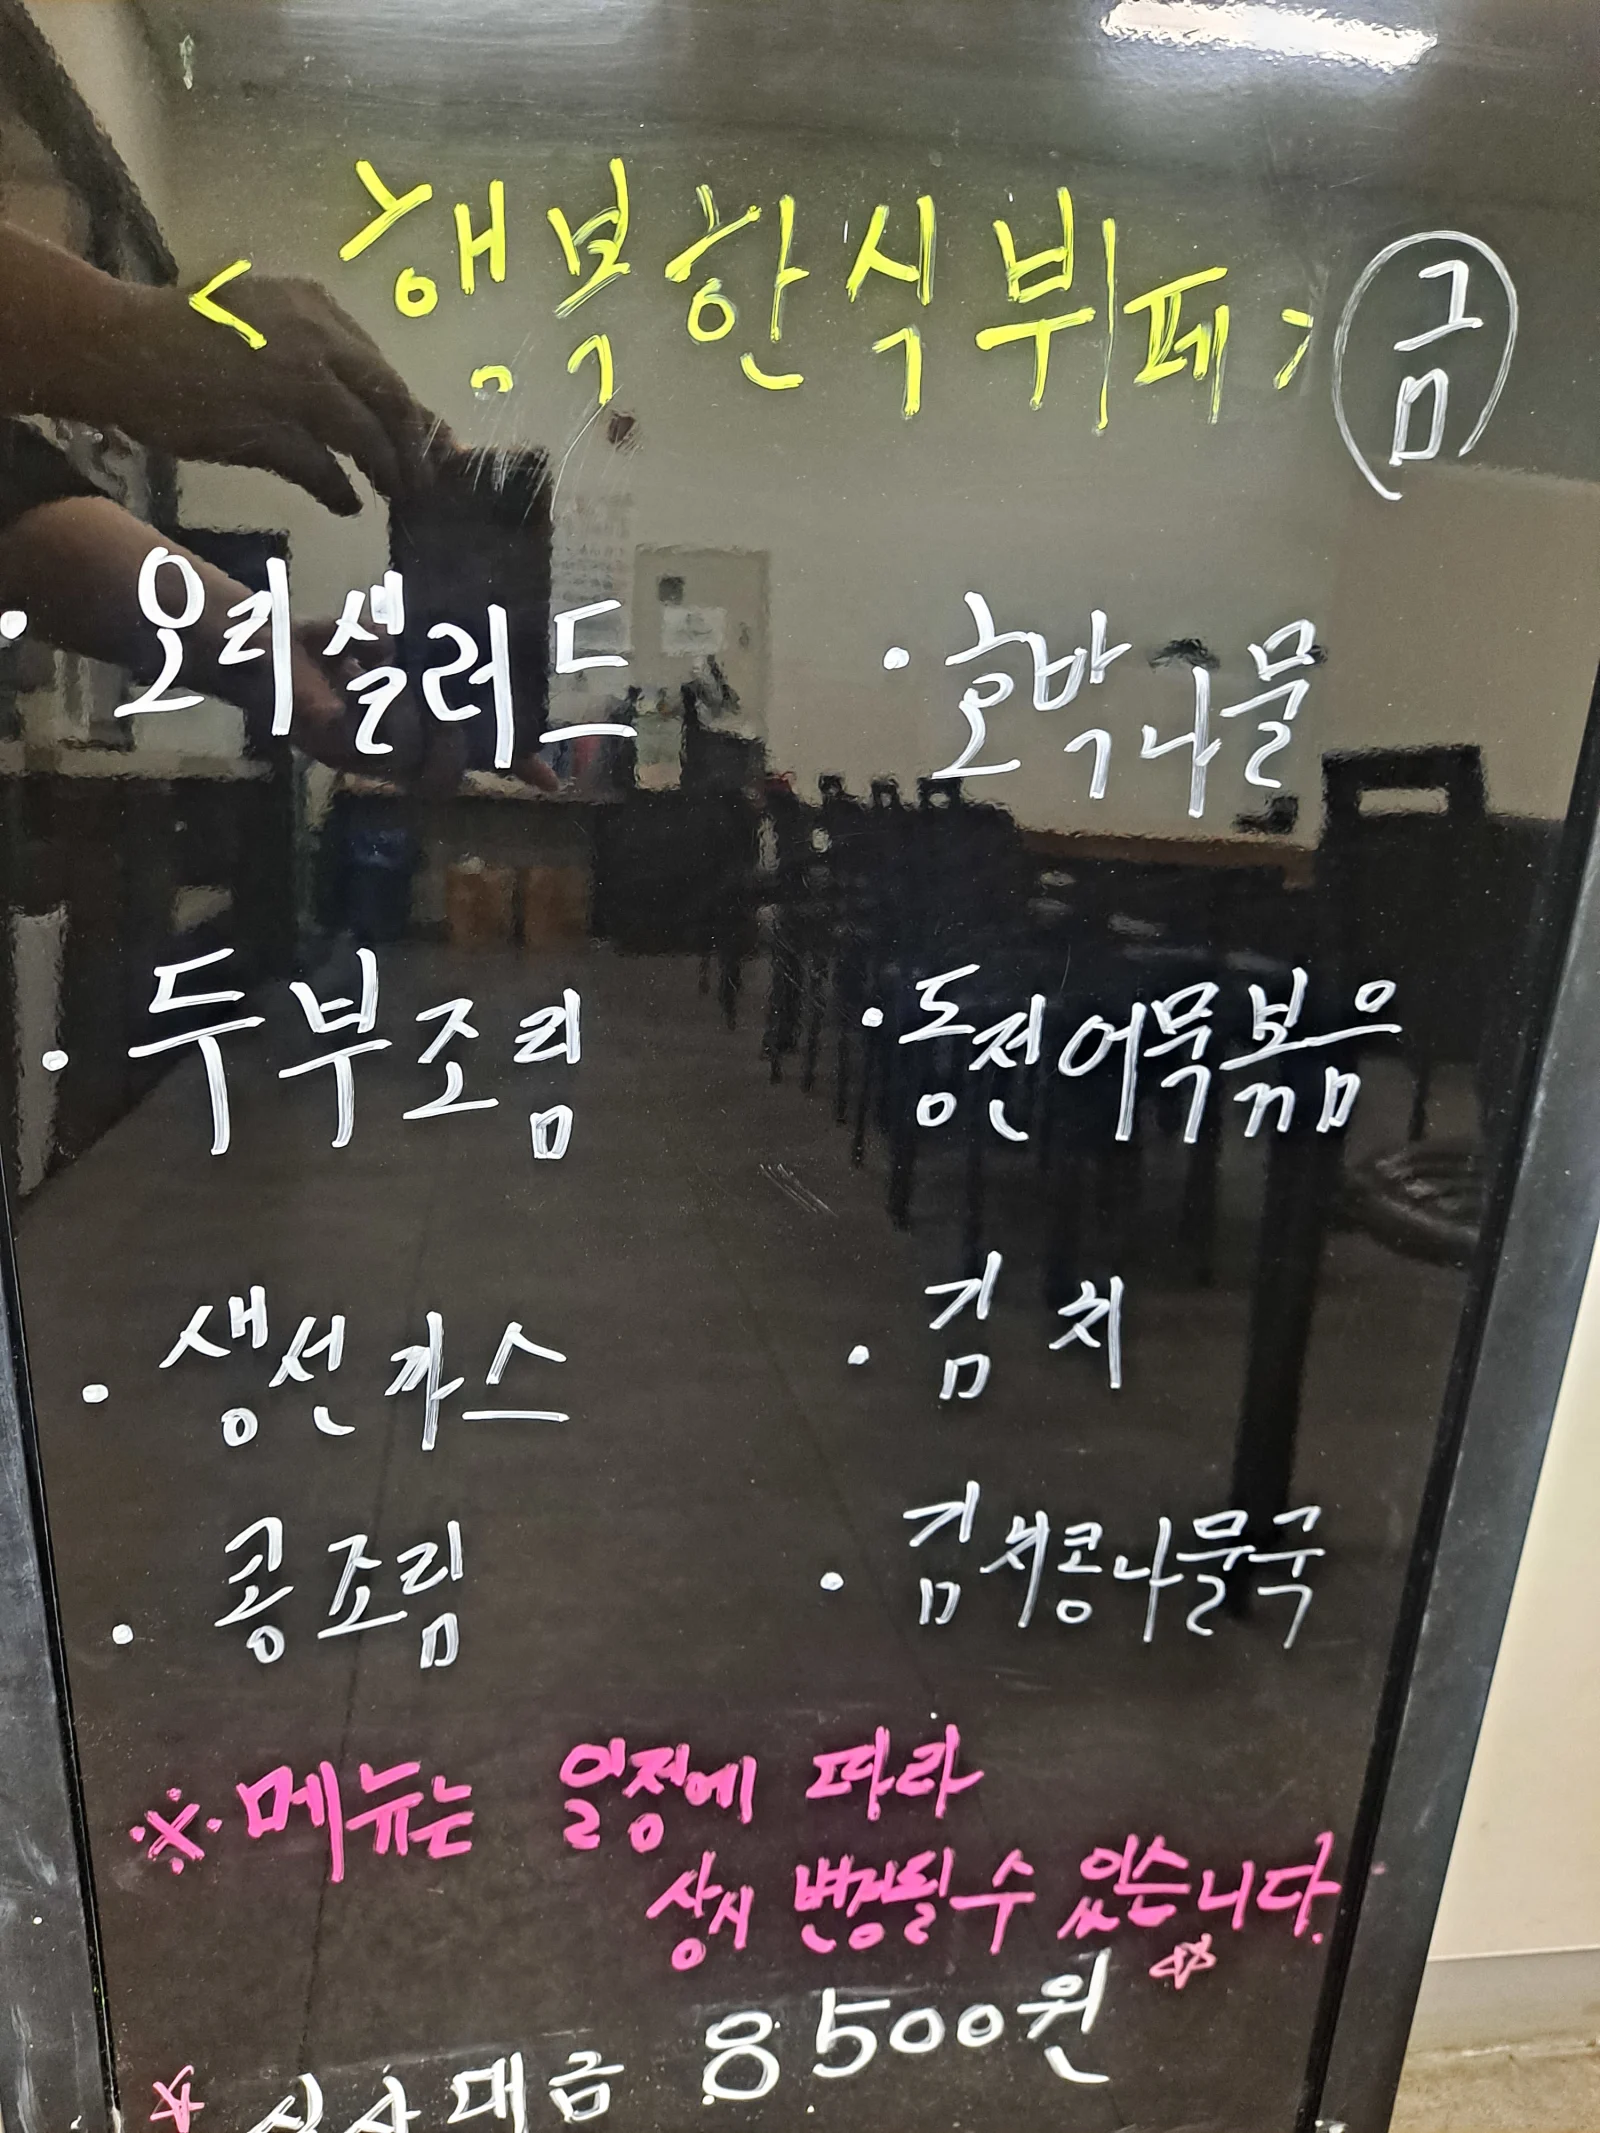 < 행복한식뷔페 > 금
· 오리샐러드
· 호박나물
· 두부조림
· 동전어묵볶음
· 생선까스
· 김치
· 콩조림
· 김치콩나물국
※ 메뉴는 일정에 따라
상시 변경될 수 있습니다.
☆ 식사대금 8500원 ☆